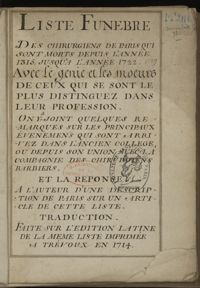 LISTE FUNEBRE
DES CHIRURGIENS DE PARIS QUI
SONT MORTS DEPUIS L'ANNÉE
1315 JUSQU'A L'ANNÉE 1722.
Avec le genie et les moeurs
DE CEUX QUI SE SONT LE
PLUS DISTINGUEZ DANS
LEUR PROFESSION.
ON Y JOINT QUELQUES RE-
MARQUES SUR LES PRINCIPAUX
ÉVENEMENS QUI SONT ARRI-
VEZ DANS L'ANCIEN COLLEGE,
OU DEPUIS SON UNION AVEC LA
COMPAGNIE DES CHIRURGIENS
BARBIERS.
ET LA REPONSE
A L'AUTEUR D'UNE DESCRIP-
TION DE PARIS SUR UN ARTI-
CLE DE CETTE LISTE.
TRADUCTION.
FAITE SUR L'EDITION LATINE
DE LA MEME LISTE IMPRIMÉE
A TRÉVOUX EN 1714.